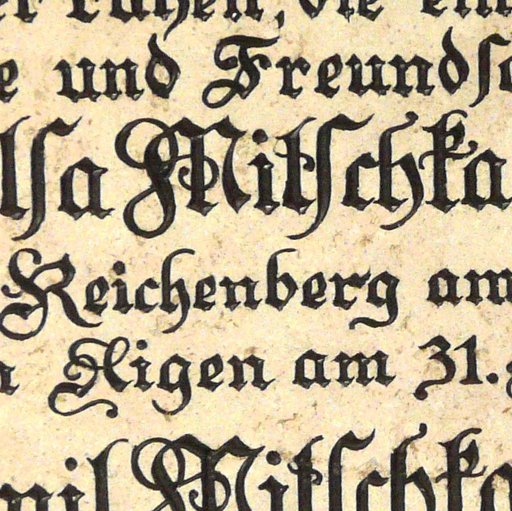 er ruhen, die ein
e und Freundsc
lsa Mitschka
Reichenberg am
n Aigen am 31.
mil Mitschka